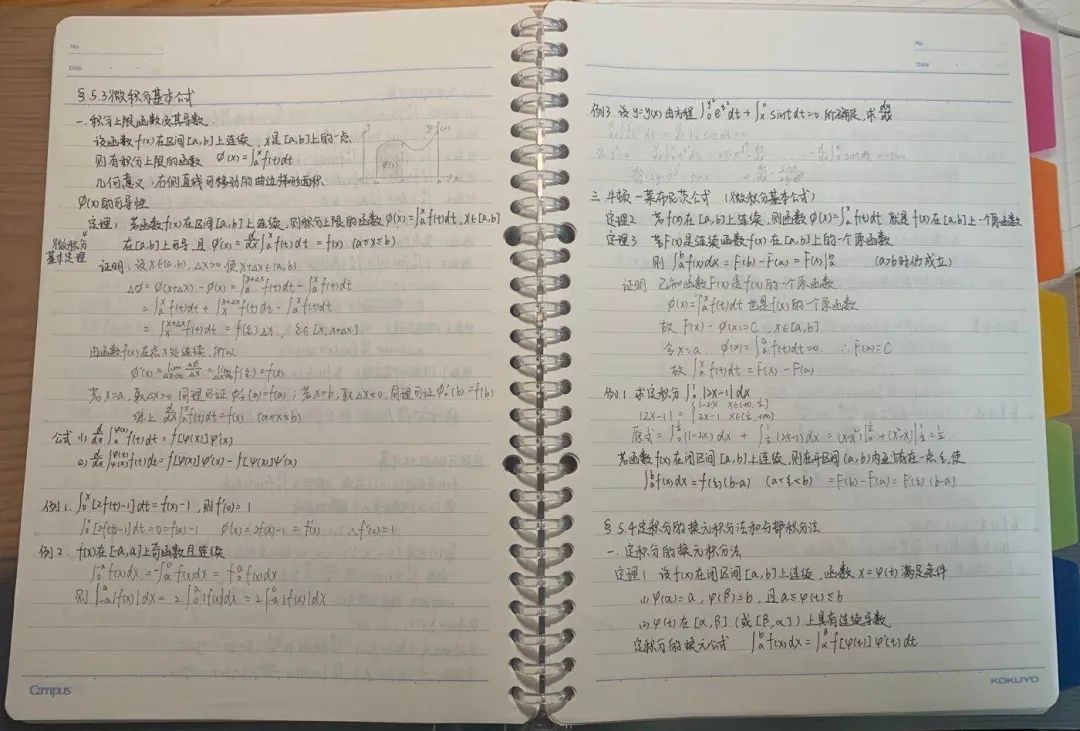 No
Date
§5.3 微积分基本公式
一. 积分上限函数及其导数
设函数 f(x) 在区间 [a,b] 上连续, x是 [a,b] 上的一点
则有积分上限的函数 φ(x)=∫_a^x f(t)dt
y=f(x)
φ(x)
几何意义: 右侧直线可移动的曲边梯形面积
φ(x)的可导性
定理1 若函数 f(x) 在区间 [a,b] 上连续, 则积分上限的函数 φ(x)=∫_a^x f(t)dt, x∈[a,b]
微积分基本定理
在 [a,b] 上可导, 且 φ'(x)=d/dx∫_a^x f(t)dt = f(x) (a≤x≤b)
证明: 设 x∈(a,b), Δx>0 使 x+Δx∈(a,b)
Δφ = φ(x+Δx) - φ(x) = ∫_a^{x+Δx} f(t)dt - ∫_a^x f(t)dt
= ∫_a^x f(t)dt + ∫_x^{x+Δx} f(t)dt - ∫_a^x f(t)dt
= ∫_x^{x+Δx} f(t)dt = f(ξ)Δx, ξ∈[x, x+Δx]
由函数 f(x) 在点 x 处连续, 所以
φ'(x) = lim_{Δx→0} Δφ/Δx = lim_{Δx→0} f(ξ) = f(x)
若 x=a, 取 Δx>0 同理可证 φ'₊(a)=f(a); 若 x=b, 取 Δx<0, 同理可证 φ'₋(b)=f(b)
综上 d/dx∫_a^x f(t)dt = f(x) (a≤x≤b)
公式 (1) d/dx∫_a^{φ(x)} f(t)dt = f[φ(x)]φ'(x)
(2)
例1. ∫_0^x [2f(t)-1]dt = f(x)-1, 则f'(0)=1
∫_0^0 [2f(t)-1]dt=0=f(0)-1 φ'(x)=2f(x)-1=f'(x) ∴f'(0)=1
例2. f(x)在[-a,a]上奇函数且连续
则 ∫_{-a}^a |f(x)|dx = 2∫_0^a |f(x)|dx = 2∫_{-a}^0 |f(x)|dx
Campus
No
Date
例3. 设 y=y(x) 由方程 ∫_0^{y²} e^{t²}dt + ∫_x^0 sint dt=0 所确定, 求 dy/dx
三. 牛顿-莱布尼茨公式 (微积分基本公式)
定理2 若 f(x) 在 [a,b] 上连续, 则函数 φ(x)=∫_a^x f(t)dt 就是 f(x) 在 [a,b] 上一个原函数
定理3 若 F(x) 是连续函数 f(x) 在 [a,b] 上的一个原函数
则 ∫_a^b f(x)dx = F(b)-F(a) = F(x)|_a^b (a>b时仍成立)
证明 已知函数 F(x) 是 f(x) 的一个原函数
φ(x)=∫_a^x f(t)dt 也是 f(x) 的一个原函数
故 F(x)-φ(x)=C, x∈[a,b]
令 x=a, φ(a)=∫_a^a f(t)dt=0 ∴F(a)=C
故 ∫_a^x f(t)dt = F(x)-F(a)
例1 求定积分 ∫_0^1 |2x-1|dx
|2x-1| = { 1-2x x∈(-∞,½)
2x-1 x∈(½,+∞)
原式 = ∫_0^½ (1-2x)dx + ∫_½^1 (2x-1)dx = (x-x²)|_0^½ + (x²-x)|_½^1 = ½
若函数 f(x) 在闭区间 [a,b] 上连续, 则在开区间 (a,b) 内至少存在一点 ξ, 使
∫_a^b f(x)dx = f(ξ)(b-a) (a<ξ<b) = F(b)-F(a) = F'(ξ)(b-a)
§5.4 定积分的换元积分法和分部积分法
一. 定积分的换元积分法
定理1 设 f(x) 在闭区间 [a,b] 上连续, 函数 x=φ(t) 满足条件
(1) φ(α)=a, φ(β)=b, 且 a≤φ(t)≤b
(2) φ(t) 在 [α,β] (或[β,α]) 上具有连续导数
定积分的换元公式 ∫_a^b f(x)dx = ∫_α^β f[φ(t)]φ'(t)dt
KOKUYO